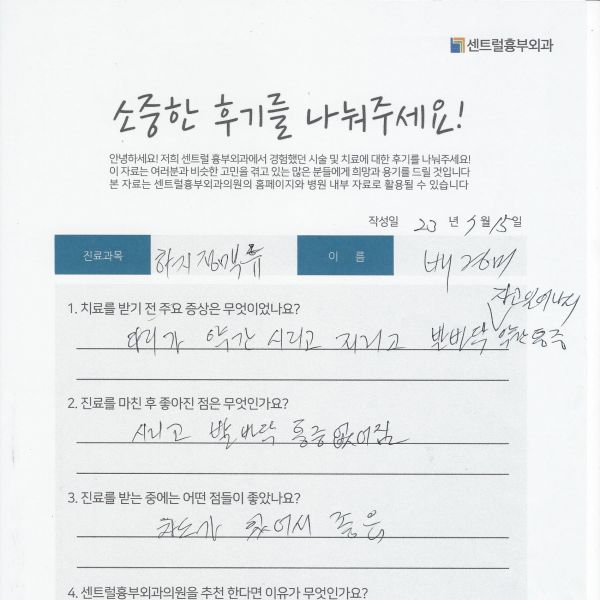 센트럴흉부외과
소중한 후기를 나눠주세요!
안녕하세요! 저희 센트럴 흉부외과에서 경험했던 시술 및 치료에 대한 후기를 나눠주세요!
이 자료는 여러분과 비슷한 고민을 겪고 있는 많은 분들에게 희망과 용기를 드릴 것입니다
본 자료는 센트럴흉부외과의원의 홈페이지와 병원 내부 자료로 활용될 수 있습니다
작성일 23 년 5 월 15 일
진료과목 하지정맥류 이 름
1. 치료를 받기 전 주요 증상은 무엇이었나요?
자고 일어나서
다리가 약간 시리고 저리고 발바닥 약간 통증
2. 진료를 마친 후 좋아진 점은 무엇인가요?
시리고 발바닥 통증 없어짐
3. 진료를 받는 중에는 어떤 점들이 좋았나요?
차도가 있어서 좋음
4. 센트럴흉부외과의원을 추천 한다면 이유가 무엇인가요?